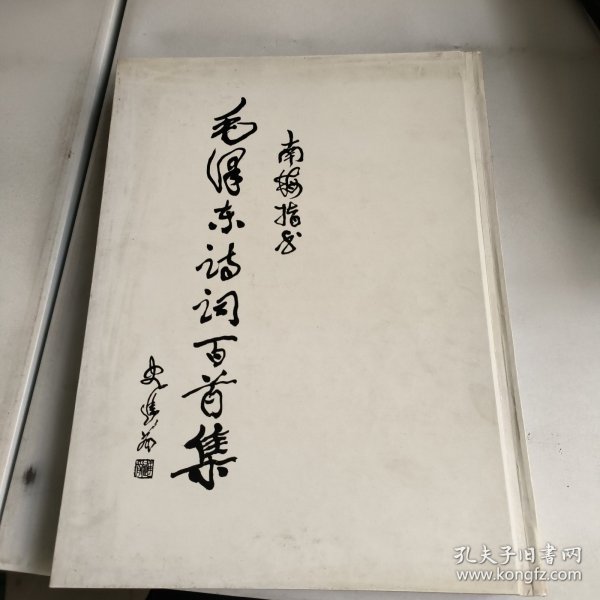 南梅指书
毛泽东诗词百首集
史进前
孔夫子旧书网
www.kongfz.com